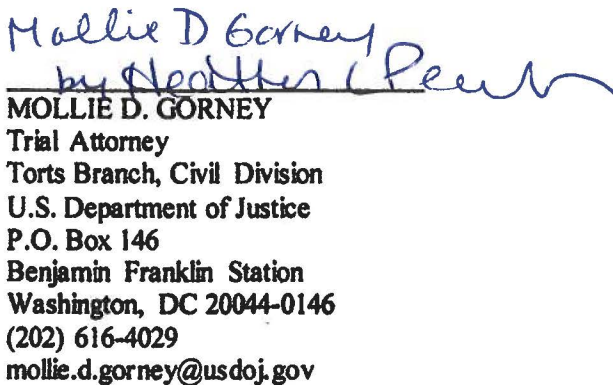 Mollie D Gorney
by Heather L Pe
MOLLIE D. GORNEY
Trial Attorney
Torts Branch, Civil Division
U.S. Department of Justice
P.O. Box 146
Benjamin Franklin Station
Washington, DC 20044-0146
(202) 616-4029
mollie.d.gorney@usdoj.gov